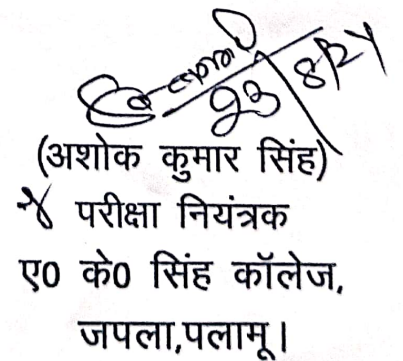 23/8/24
(अशोक कुमार सिंह)
परीक्षा नियंत्रक
ए0 के0 सिंह कॉलेज,
जपला,पलामू।